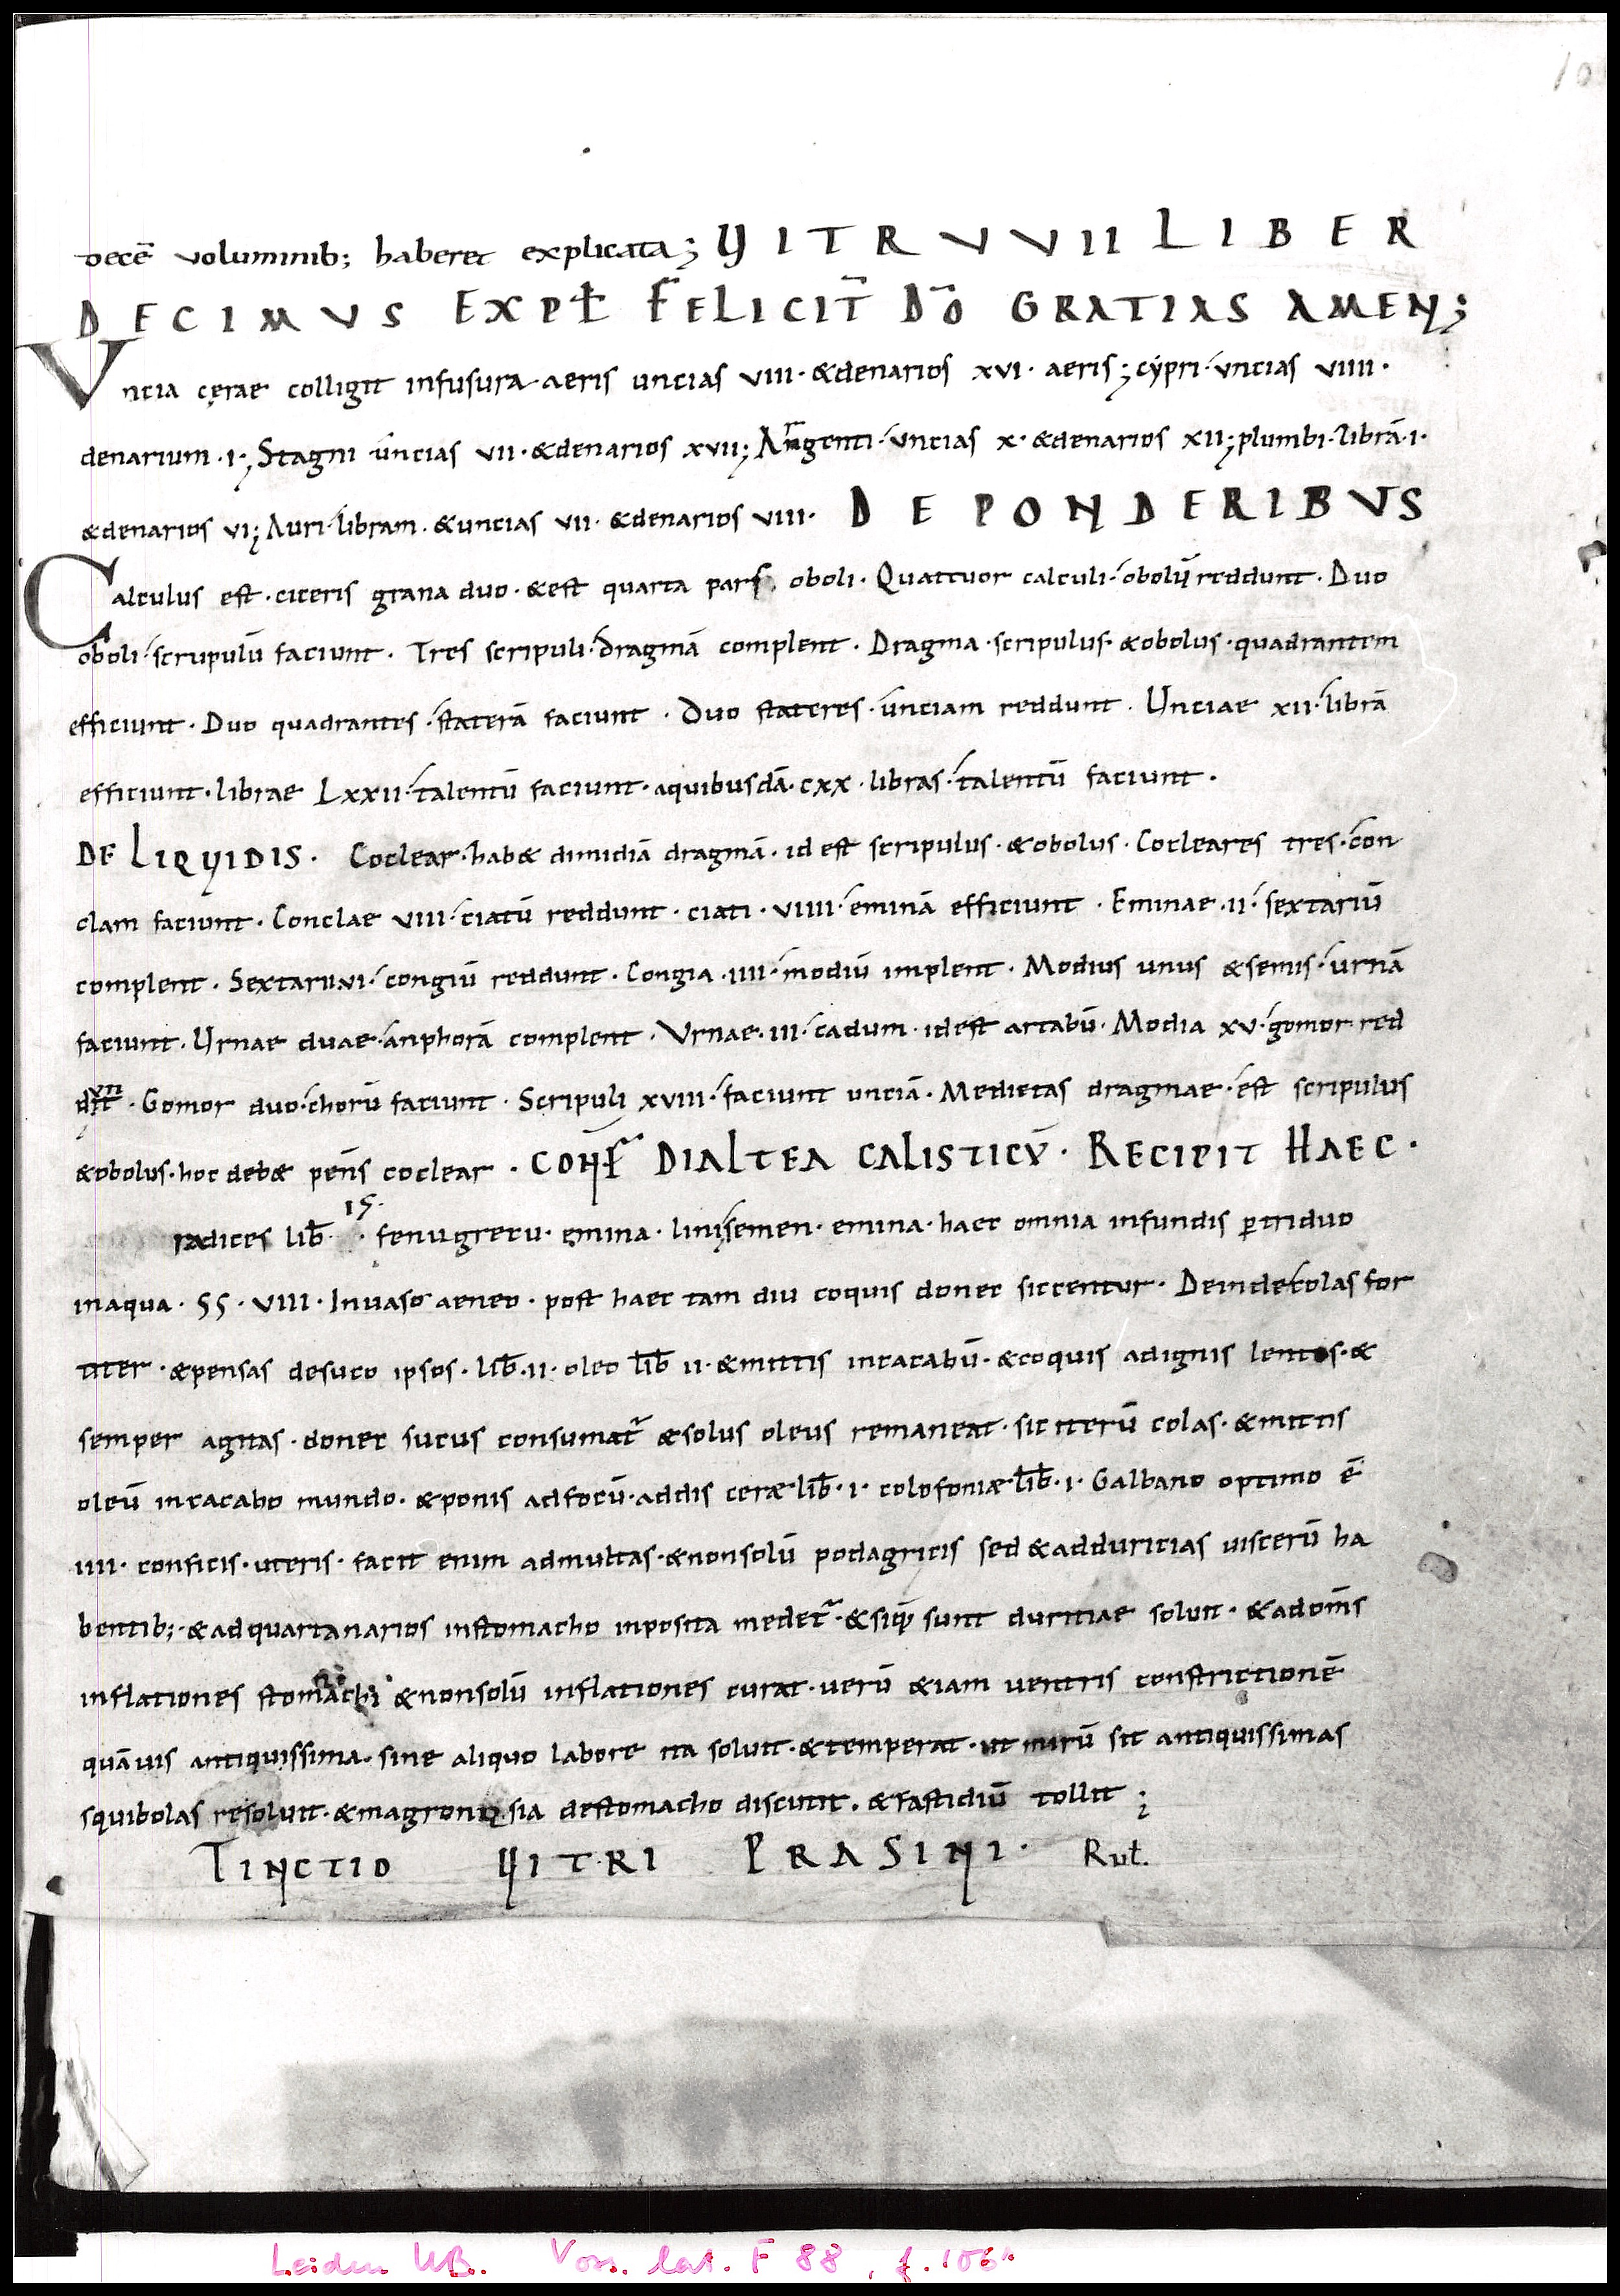 10
decē voluminib; haberet explicata; VITRVVII LIBER
DECIMVS EXPŁ FELICIT̄ DŌ GRATIAS AMEN;
Vncia cerae colligit infusura aeris uncias VIII· &denarios XVI· aeris; cypri· uncias VIIII·
denarium ·I·; Stagni uncias VII· &denarios XVII; Argenti· uncias X· &denarios XII; plumbi· librā·I·
&denarios VI; Auri· libram· &uncias VII· &denarios VIII· DE PONDERIBVS
Calculus est· ciceris grana duo· &est quarta pars oboli· Quattuor calculi· obolū reddunt· Duo
oboli· scrupulū faciunt· Tres scripuli· dragmā complent· Dragma· scripulus· &obolus· quadrantem
efficiunt· Duo quadrantes· staterā faciunt· Duo stateres· unciam reddunt· Unciae XII· librā
efficiunt· librae LXXII· talentū faciunt· aquibusdā· CXX· libras· talentū faciunt·
DE LIQVIDIS· Coclear· hab& dimidiā dragmā· id est scripulus· &obolus· Cocleares tres· con
clam faciunt· Conclae VIII· ciatū reddunt· ciati· VIIII· eminā efficiunt· Eminae·II· sextariū
complent· Sextarii·VI· congiū reddunt· Congia·IIII· modiū implent· Modius unus &semis· urnā
faciunt· Urnae duae· anphorā complent· Vrnae·III· cadum· id est artabū· Modia XV· gomor red
dunt· Gomor duo· chorū faciunt· Scripuli XVIII· faciunt unciā· Medietas dragmae· est scripulus
&obolus· hoc deb& pens̄ coclear· CONF̄ DIALTEA CALISTICV̄· RECIPIT HAEC·
radices lib̄ IS· fenugrecu· emina· linisemen· emina· haec omnia infundis ꝑtriduo
inaqua· SS· VIII· Inuaso aeneo· post haec tam diu coquis donec siccentur· Deindecolas for
titer· &pensas desuco ipsos· lib̄·II· oleo lib̄ II· &mittis incacabū· &coquis adignis lentos· &
semper agitas· donec sucus consumat̄ &solus oleus remaneat· sic iterū colas· &mittis
oleū incacabo mundo· &ponis adfocū· addis cerae lib̄·I· colofoniae lib̄·I· Galbano optimo ē
IIII· conficis· uteris· facit enim admultas· &nonsolū podagricis sed &adduricias uiscerū ha
bentib;· &adquartanarios instomacho inposita medet̄· &siq̄ sunt duritiae soluit· &adom̄s
inflationes stomachi &nonsolū inflationes curat· uerū &iam uentris constrictionē
quāuis antiquissima· sine aliquo labore ita soluit· &temperat· ut mirū sit antiquissimas
squibolas resoluit· &magron sia destomacho discutit· &fastidiū tollit;
TINCTIO VITRI PRASINI· Rut.
Leiden UB. Voss. lat. F 88, f. 106r